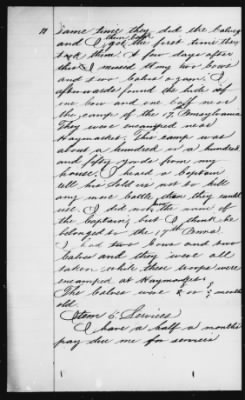 11 same time they did the baling
and I got them back the first time they
took them. A few days after
this I missed my two cows
and two calves again. I
afterwards found the hide of
one cow and one calf near
the camp of the 17 Pennsylvania
They were encamped near
Haymarket. This camp was
about a hundred or a hundred
and fifty yards from my
house. I heard a Captain
tell his Soldiers not to kill
any more cattle than they could
use. I did not the name of
the Captain, but I think he
belonged to the 17th Penna.
I had two cows and two
calves and they were all
taken while these troops were
encamped at Haymarket.
The calves were 2 or 3 months
old.
Item 6. Services
I have a half a months
pay due me for services